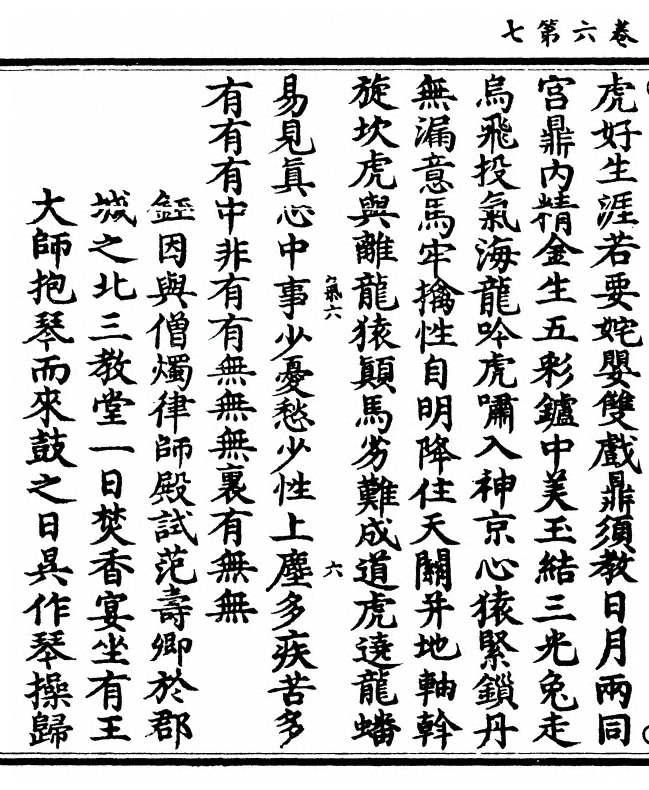 卷六第七
虎好生涯若要姹嬰雙戲鼎須教日月兩同
宮鼎内精金生五彩鑪中美玉結三光兔走
烏飛投氣海龍吟虎嘯入神京心猿緊鎖丹
無漏意馬牢擒性自明降住天關并地軸斡
旋坎虎與離龍猿顛馬劣難成道虎遶龍蟠
氣六 六
易見眞心中事少憂愁少性上塵多疾苦多
有有有中非有有無無無裏有無無
鈺因與僧燭律師殿試范壽卿於郡
城之北三教堂一日焚香宴坐有王
大師抱琴而來鼓之日作琴操歸